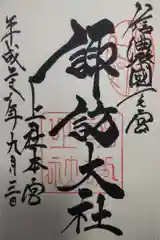 信濃國一之宮
諏訪大社
上社本宮
平成 年九月 日